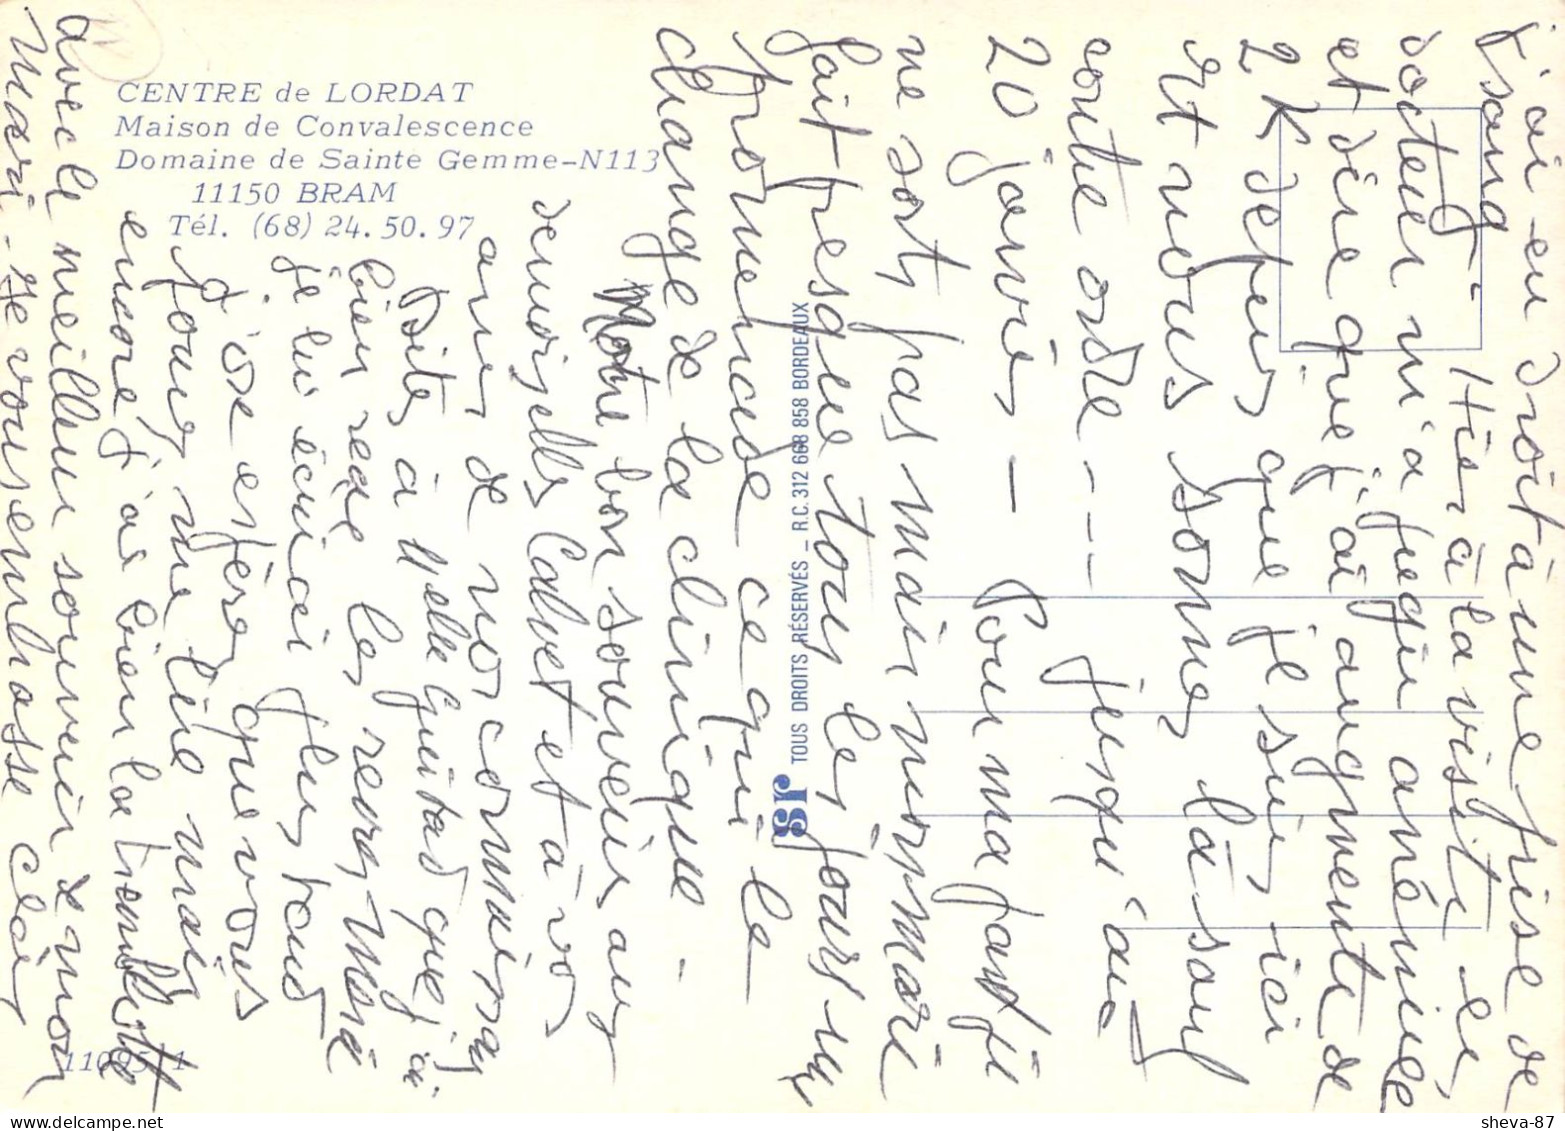 CENTRE de LORDAT
Maison de Convalescence
Domaine de Sainte Gemme-N113
11150 BRAM
Tél. (68) 24.50.97
J'ai eu droit à une prise de
sang. Hier à la visite le
docteur m'a anémiée
et dire que j'ai augmenté de
2 K depuis que je suis ici
et nous sommes là sauf
contre ordre --- jusqu'au
20 janvier — Pour ma part je
ne sors pas mais mon mari
fait presque tous les jours sa
promenade ce qui le
change de la clinique -
Notre bon souvenir aux
demoiselles Calvet et à vos
amis de nos connaissances
Dites à Melle Guitard que j'ai
bien reçu les revues. Merci
je lui écrirai plus tard
J'ose espérer que vous
pourrez me lire mais
encore j'ai bien la tremblotte
avec le meilleur souvenir de mon
mari - je vous embrasse
sr TOUS DROITS RÉSERVÉS _ R.C. 312 668 858 BORDEAUX
sheva-87